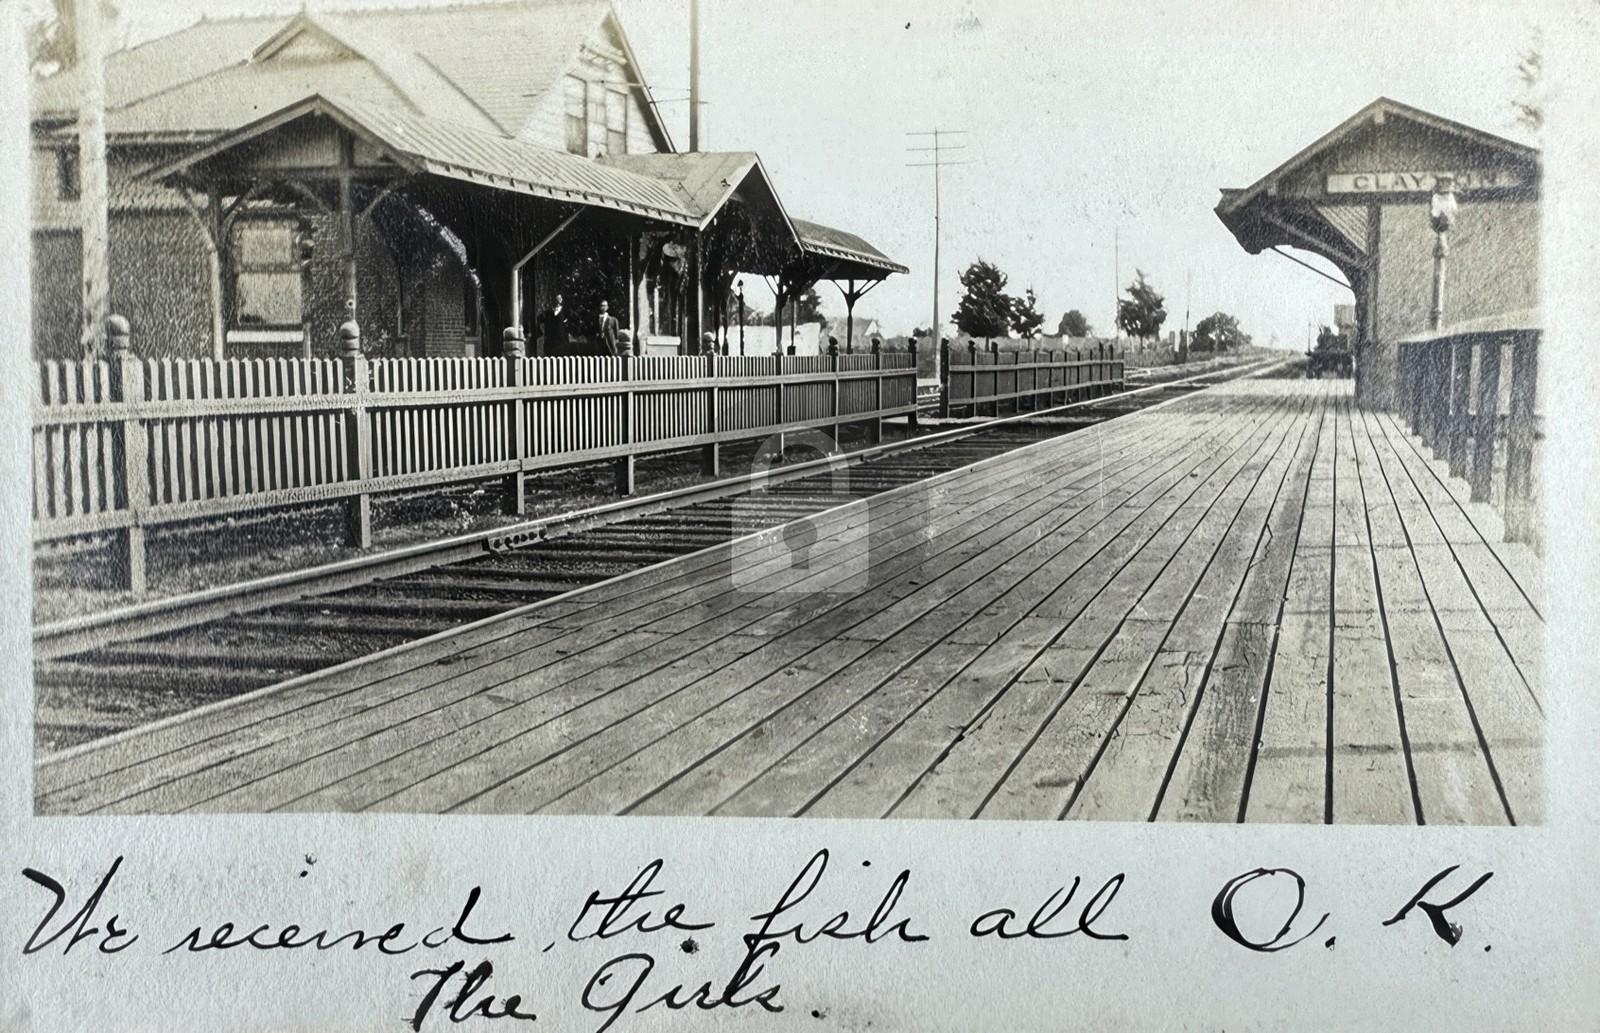 CLAY
We received the fish all O. K.
The Girls.